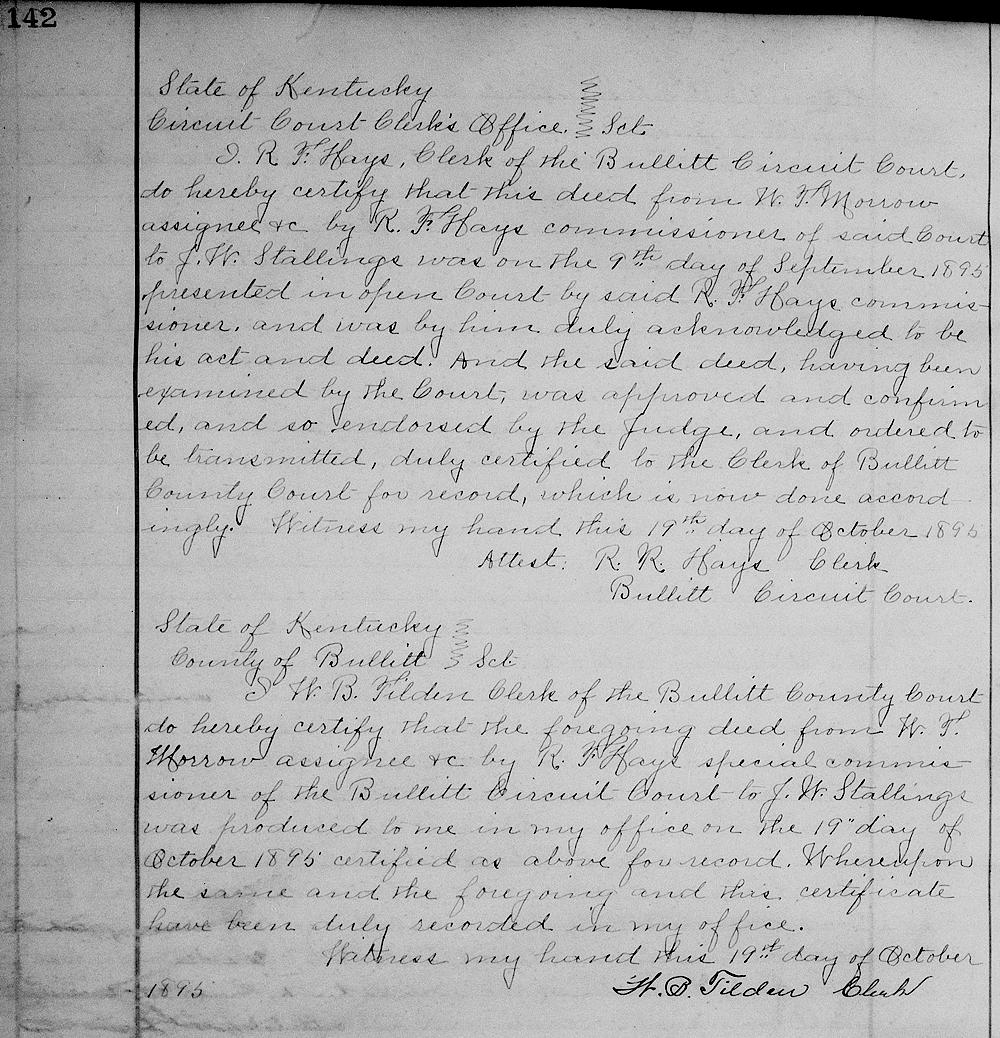 142
State of Kentucky
Circuit Court Clerk's Office. Sct.
I. R. F. Hays, Clerk of the Bullitt Circuit Court,
do hereby certify that this deed from W. F. Morrow
assignee &c by R. F. Hays commissioner of said Court
to J. W. Stallings was on the 9th day of September 1895
presented in open Court by said R. F. Hays commis-
sioner, and was by him duly acknowledged to be
his act and deed. And the said deed, having been
examined by the Court, was approved and confirm
ed, and so endorsed by the Judge, and ordered to
be transmitted, duly certified to the Clerk of Bullitt
County Court for record, which is now done accord-
ingly. Witness my hand this 19th day of October 1895
Attest: R. R. Hays Clerk
Bullitt Circuit Court.
State of Kentucky
County of Bullitt Sct.
I W. B. Tilden Clerk of the Bullitt County Court
do hereby certify that the foregoing deed from W. F.
Morrow assignee &c by R. F. Hays special commis-
sioner of the Bullitt Circuit Court to J. W. Stallings
was produced to me in my office on the 19" day of
October 1895 certified as above for record. Whereupon
the same and the foregoing and this certificate
have been duly recorded in my office.
Witness my hand this 19th day of October
1895
W. B. Tilden Clerk